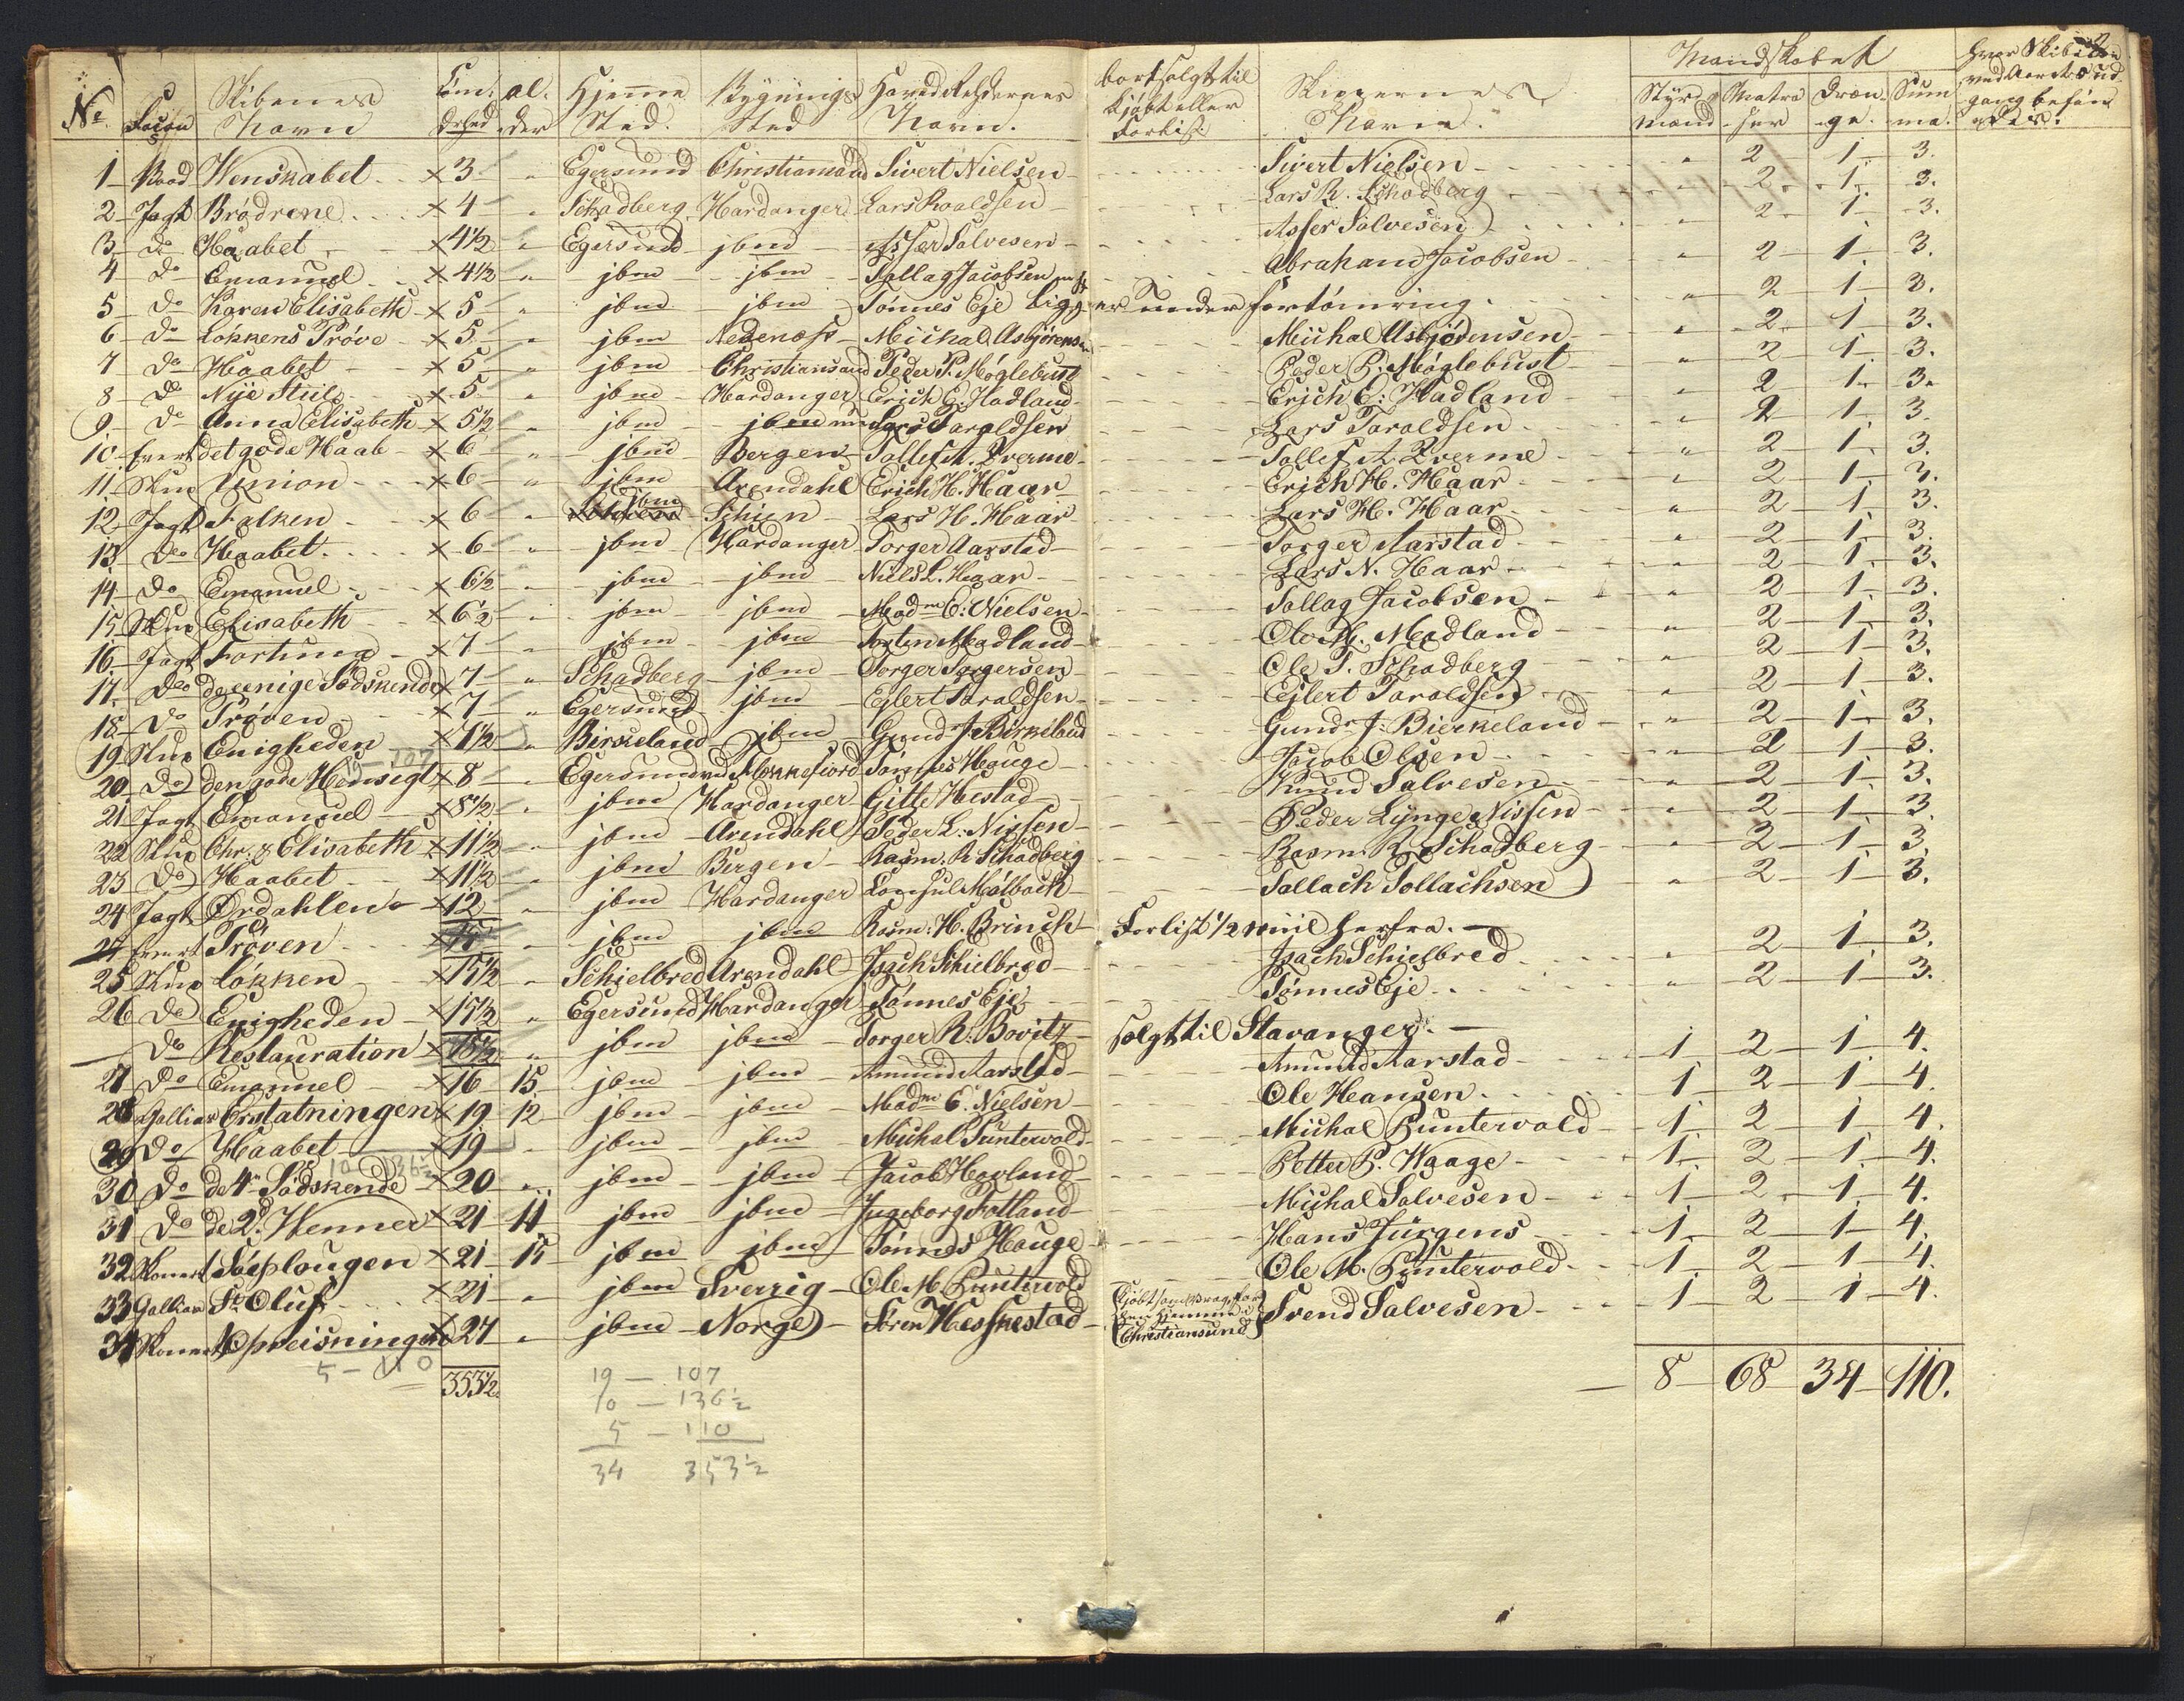 No. Skibenes Navn Hjemme Sted. Bygnings Sted Hoved Rhedernes Navn. bortsolgt til kjöbt eller Forlist Skippernes Navn. Mandskabet Styrmænd Matroser Drenge. Summa.
1 Baad Wenskabet × 3 " Egersund Christiansand Sivert Nielsen Sivert Nielsen " 2 1 3.
2 Jagt Brödrene × 4 " Schadberg Hardanger Lars Roaldsen Lars R. Schadberg " 2 1 3.
3 do Haabet × 4½ " Egersund jbm Asser Salvesen Asser Salvesen " 2 1 3.
4 do Emanuel × 4½ " jbm jbm Tallag Jacobsen Abraham Jacobsen " 2 1 3.
5 do Karen Elisabeth × 5 " jbm jbm Tönnes Eje ligger under fortömring " 2 1 3.
6 do Lökkens Pröve × 5 " jbm Nedenæs Michal Asbjörensen Michal Asbjörensen " 2 1 3.
7 do Haabet × 5 " jbm Christiansand Peder P. Möglebust Peder P. Möglebust " 2 1 3.
8 do Nÿe Stiil × 5 " jbm Hardanger Erich E. Hadland Erich E: Hadland " 2 1 3.
9 do Anna Elisabeth × 5½ " jbm jbm Lars Taraldsen Lars Taraldsen " 2 1 3
10 Evert det gode Haab × 6 " jbm Bergen Tollef A. Qverme Tollef A. Qverme " 2 1 3.
11 Skup Union × 6 " jbm Arendahl Erich H. Haar Erich H. Haar " 2 1 3.
12 Jagt Falken × 6 " jbm Schien Lars H. Haar Lars H. Haar " 2 1 3.
13 do Haabet × 6 " jbm Hardanger Torger Aarstad Torger Aarstad " 2 1 3.
14 do Emanuel × 6½ " jbm jbm Niels L. Haar Lars N. Haar " 2 1 3.
15 Skup Elisabeth × 6½ " jbm jbm Madme E: Nielsen Tallag Jacobsen " 2 1 3.
16 Jagt Fortuna × 7 " jbm jbm Torsten Madland Ole M. Madland " 2 1 3.
17 do de eenige Södskende × 7 " Schadberg jbm Torger Torgersen Ole T. Schadberg " 2 1 3.
18 do Pröven × 7 " Egersund jbm Ejlert Taraldsen Ejlert Taraldsen " 2 1 3.
19 Skup Enigheden × 7½ " Birkeland jbm Gund J. Birkeland Gundr J. Bierkeland " 2 1 3.
19 — 107
20 do den gode Hensigt × 8 " Egersund Flekkefiord Tönnes Hauge Jacob Olsen " 2 1 3.
21 Jagt Emanuel × 8½ " jbm Hardanger Gitte Hestad Knud Salvesen " 2 1 3.
22 Skup Chr: & Elisabeth × 11½ " jbm Arendahl Peder L: Nissen Peder Lÿnge Nissen " 2 1 3.
23 do Haabet × 11½ " jbm Bergen Rasm. R. Schadberg Rasm. R. Schadberg " 2 1 3.
24 Jagt Ördahlen × 12 " jbm Hardanger Consul Malbach Tallach Tollachsen " 2 1 3.
Evert Pröven × " jbm jbm Rasm: H. Brinch Forlist ½ miil herfra.
25 Skup Lökken × 15½ " Schielbred Arendahl Isach Schielbred Isach Schielbred " 2 1 3.
26 do Enigheden × 15½ " Egersund Hardanger Tönnes Eje Tönnes Eje " 2 1 3.
do Restauration × 18½ " jbm jbm Torger R. Bovitz solgt til Stavanger.
27 do Emanuel × 16 15 jbm jbm Amund Aarstad Amund Aarstad 1 2 1 4.
28 Gallias Erstatningen × 19 12 jbm jbm Madme E. Nielsen Ole Hansen 1 2 1 4.
29 do Haabet × 19 " jbm jbm Michal Puntervold Michal Puntervold 1 2 1 4.
10 136½
30 do de 4re Södskende × 20 " jbm jbm Jacob Hovland Petter P. Waage 1 2 1 4.
31 do de 2de Wenner × 21 11 jbm jbm Ingeborg Fotland Michal Salvesen 1 2 1 4.
32 Konert Söeplougen × 21 15 jbm jbm Tönnes Hauge Hans Jürgens 1 2 1 4.
33 Gallias St. Oluf × 21 " jbm Sverrig Ole M. Puntervold Ole M. Puntervold 1 2 1 4.
34 Konert Opreisningen × 27 " jbm Norge Sören Hesnestad Kjöbt som Vrag Christiansund Svend Salvesen 1 2 1 4.
5 — 110
353½ 8 68 34 110.
19 — 107
10 — 136½
5 — 110
34 353½